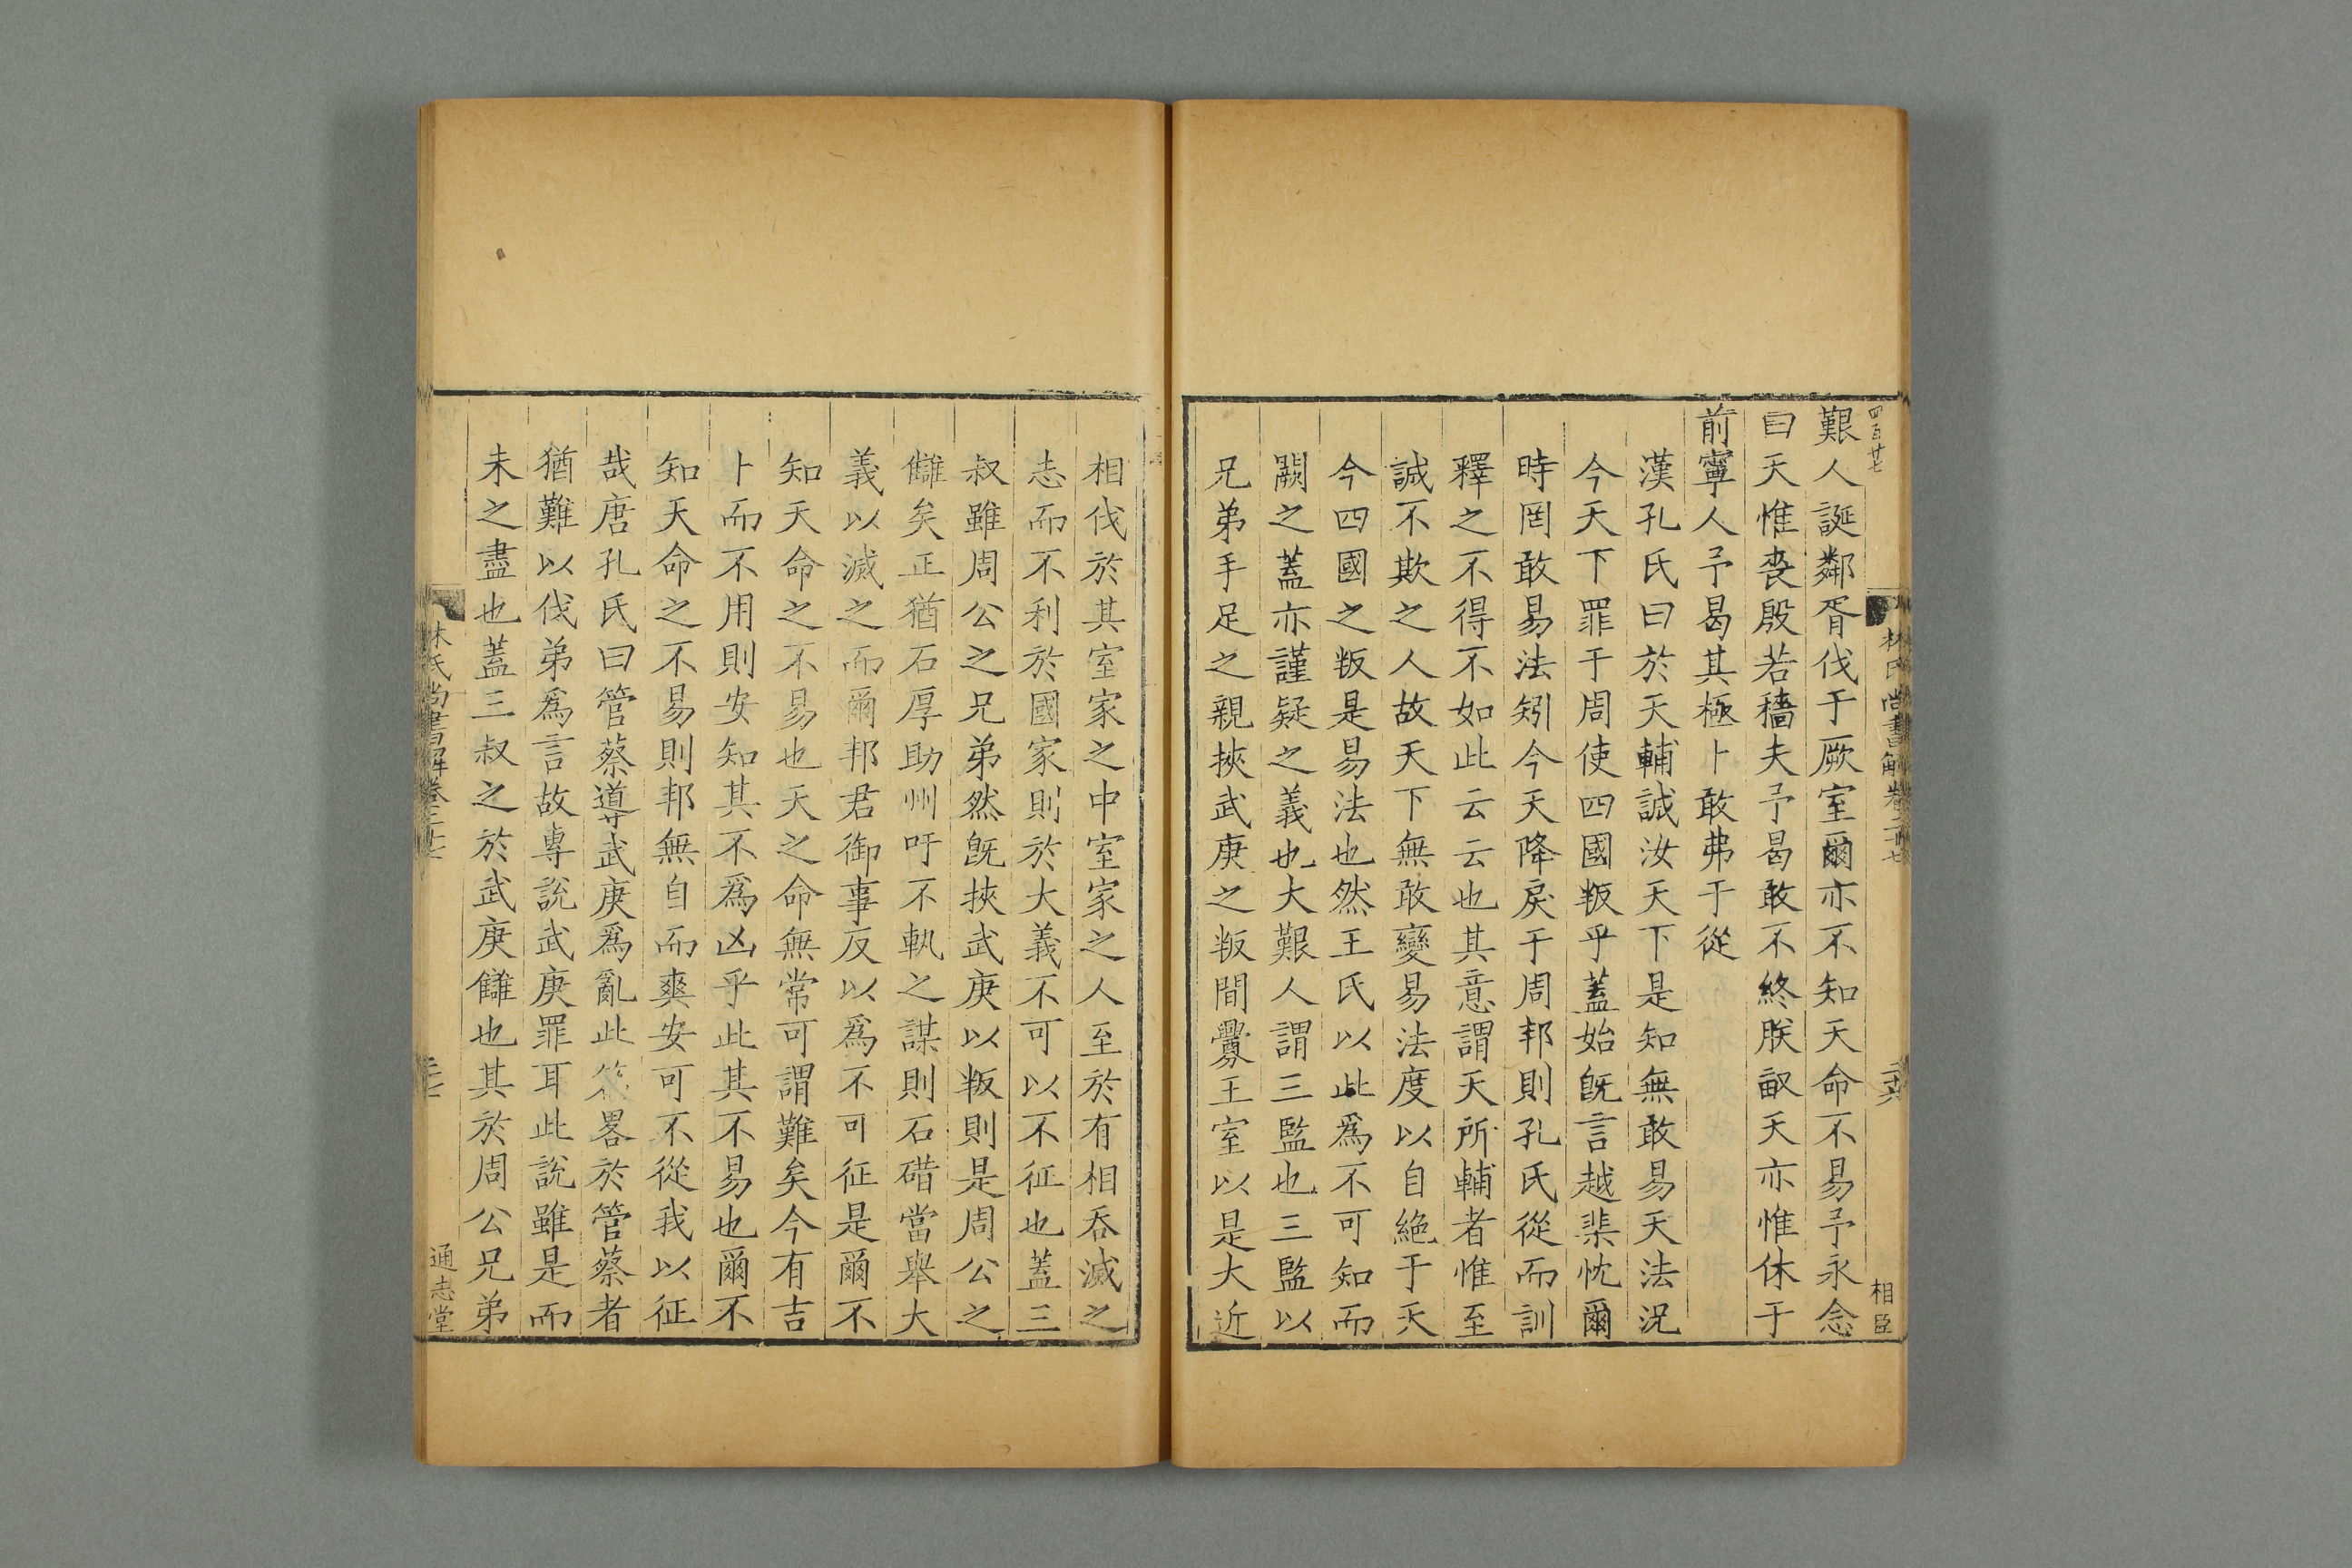 四百廿七
林氏尚書解卷二十七
二十六
相臣
艱人誕鄰胥伐于厥室爾亦不知天命不易予永念
曰天惟喪殷若穡夫予曷敢不終朕畝天亦惟休于
前寧人予曷其極卜敢弗于從
漢孔氏曰於天輔誠汝天下是知無敢易天法況
今天下罪于周使四國叛乎蓋始旣言越棐忱爾
時罔敢易法矧今天降戾于周邦則孔氏從而訓
釋之不得不如此云云也其意謂天所輔者惟至
誠不欺之人故天下無敢變易法度以自絶于天
今四國之叛是易法也然王氏以此爲不可知而
闕之蓋亦謹疑之義也大艱人謂三監也三監以
兄弟手足之親挾武庚之叛間釁王室以是大近
相伐於其室家之中室家之人至於有相吞滅之
志而不利於國家則於大義不可以不征也蓋三
叔雖周公之兄弟然旣挾武庚以叛則是周公之
讎矣正猶石厚助州吁不軌之謀則石碏當舉大
義以滅之而爾邦君御事反以爲不可征是爾不
知天命之不易也天之命無常可謂難矣今有吉
卜而不用則安知其不爲凶乎此其不易也爾不
知天命之不易則邦無自而爽安可不從我以征
哉唐孔氏曰管蔡導武庚爲亂此畧於管蔡者
猶難以伐弟爲言故專說武庚罪耳此說雖是而
未之盡也蓋三叔之於武庚讎也其於周公兄弟
林氏尚書解卷二十七
二十七
通志堂